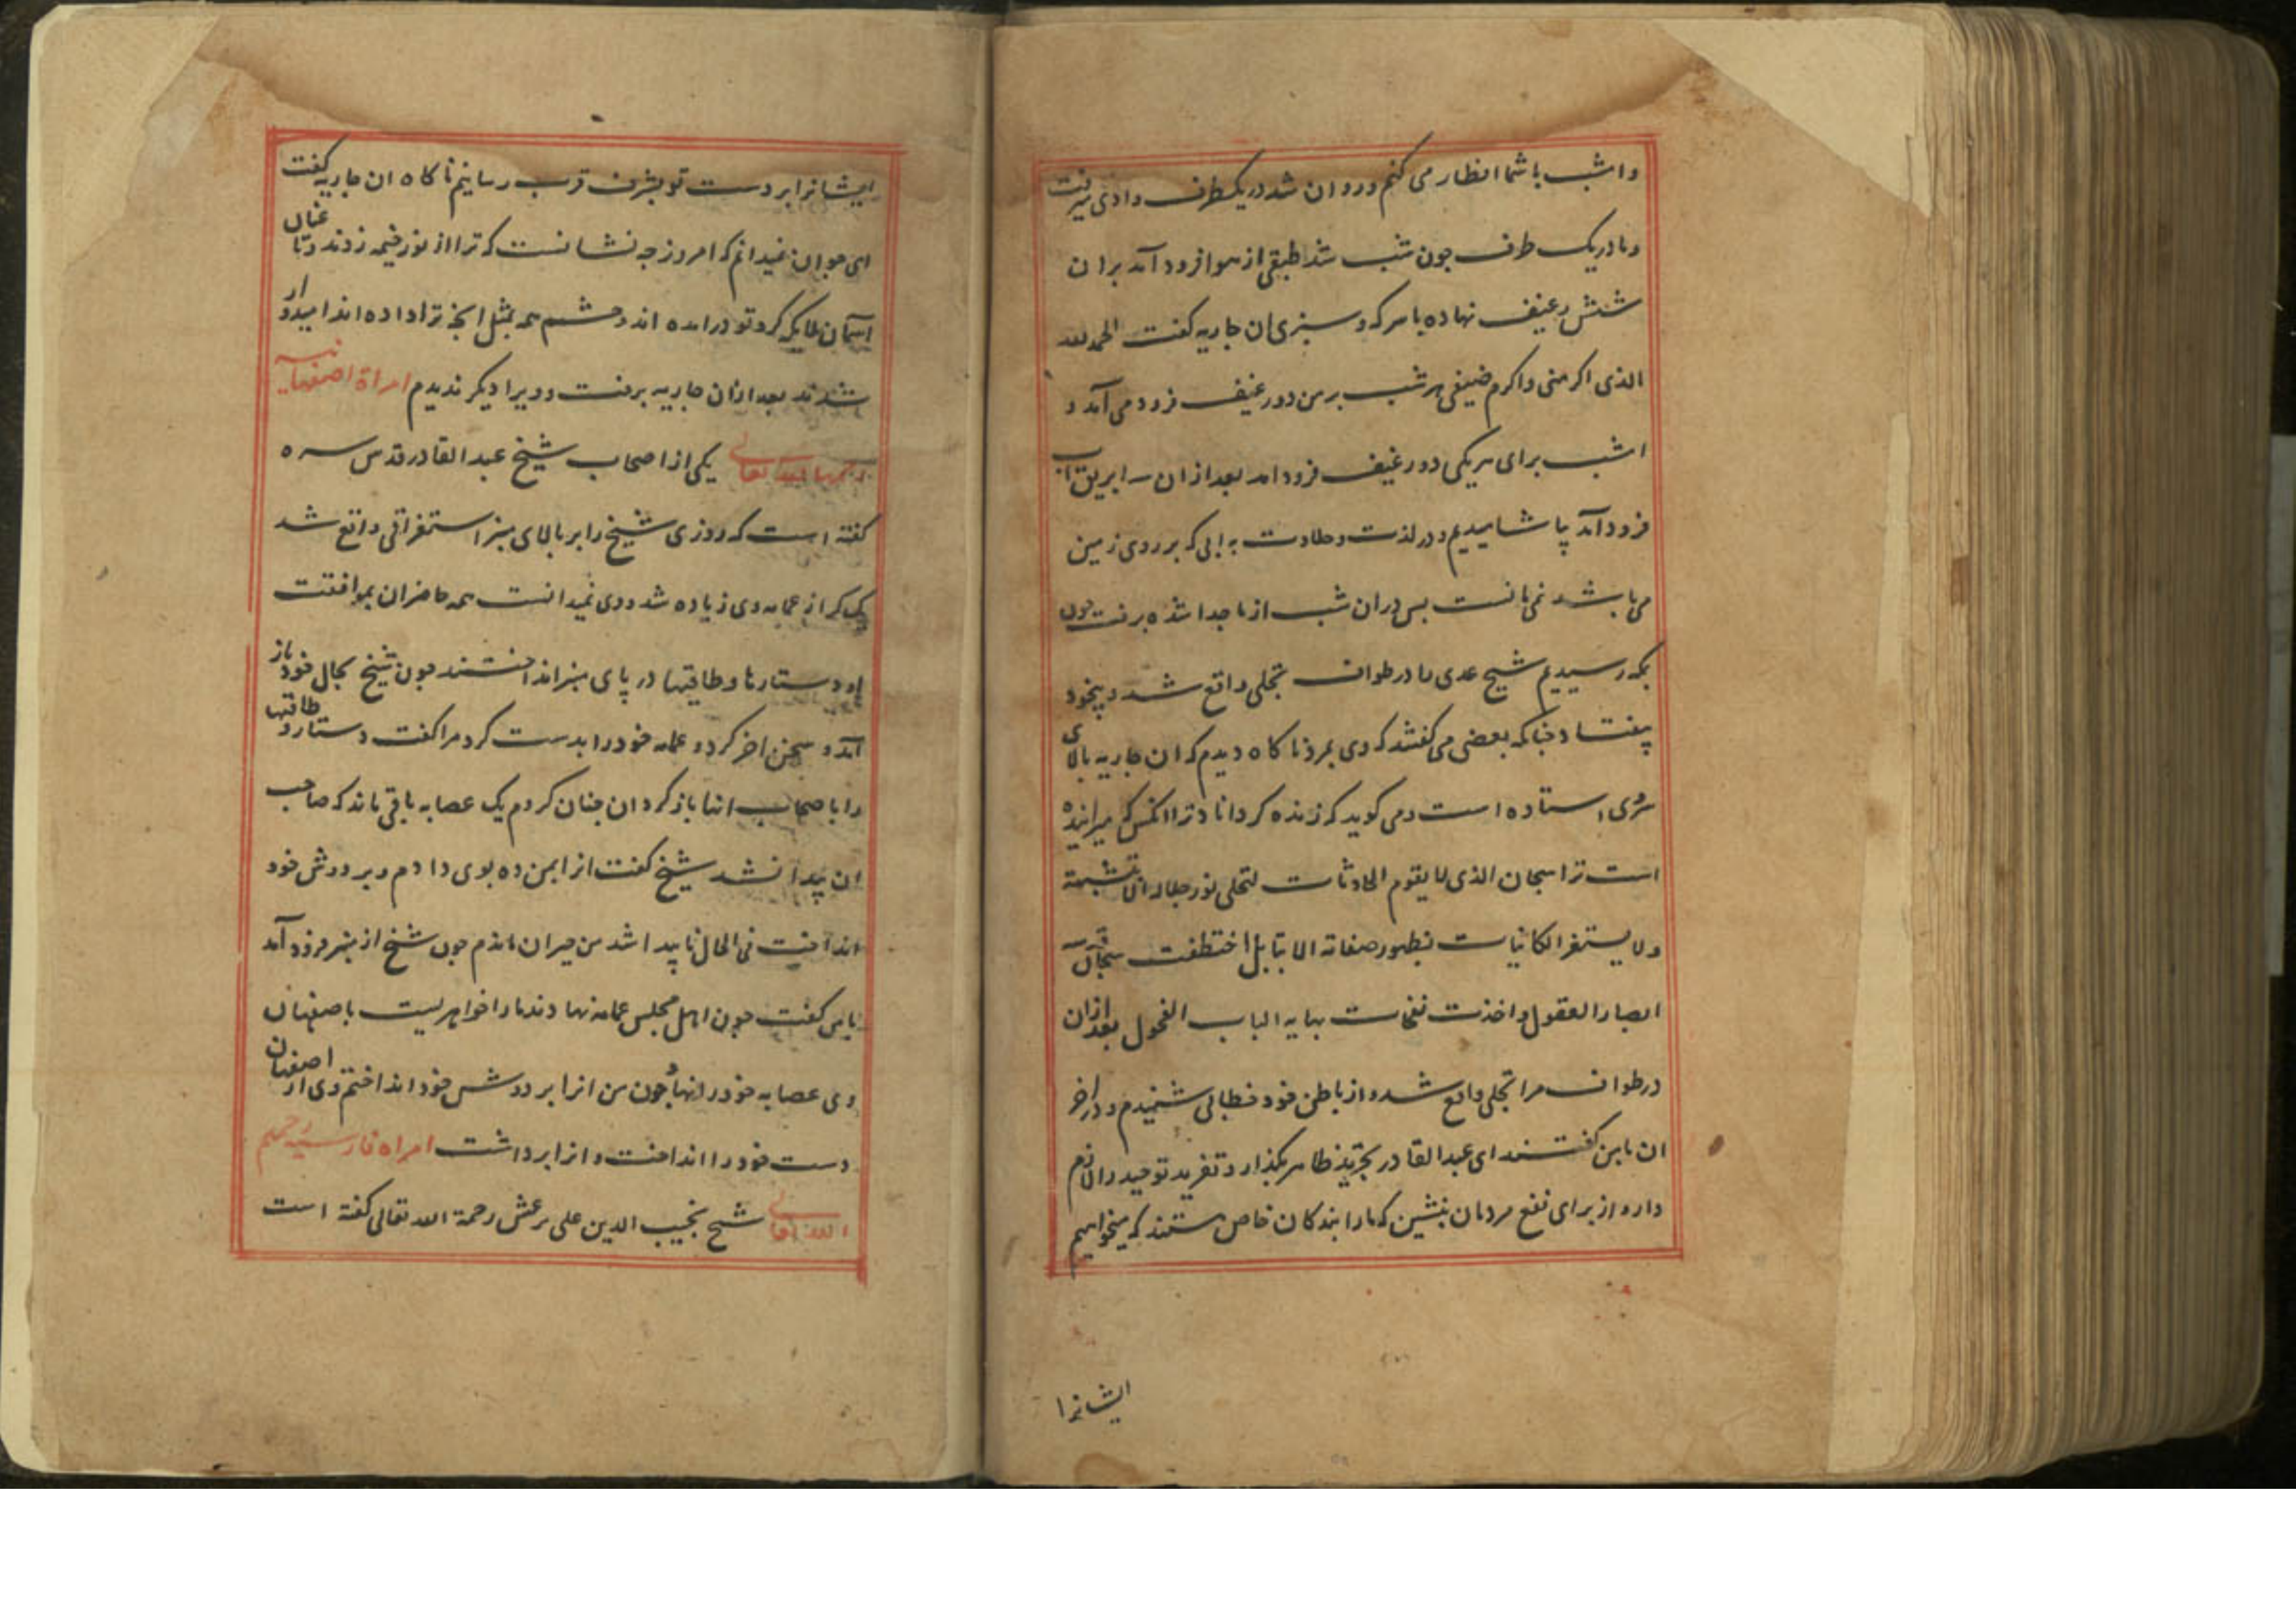 وامشب با شما افطار می کنم و روان شد در یکطرف وادی میرفت
و ما در یک طرف چون شب شد طبقی از هوا فرود آمد بران
شش رغیف نهاده با سرکه و سبزی ان جاریه کفت الحمد لله
الذی اکرمنی واکرم ضیفی هر شب بر من دو رغیف فرود می آمد و
امشب برای هر یکی دو رغیف فرود امد بعد ازان سه ابریق آب
فرود آمد بیاشامیدیم در لذت و حلاوت به ابی که بر روی زمین
می باشد نمی مانست پس دران شب از ما جدا شده برفت چون
بمکه رسیدیم شیخ عدی را در طواف تجلی واقع شد و بیخود
بیفتاد چنانکه بعضی می کفتند که وی بمرد ناکاه دیدم که ان جاریه بالای
سر وی استاده است و می کوید که زنده کرداناد ترا انکس که میرانیده
است ترا سبحان الذی لا یقوم الحادثات لتجلی نور جلاله الا بتثبیته
ولا یستقر الکائنات لظهور صفاته الا بتایید اختطفت سبحات
ابصار العقول واخذت نفحات بهایه الباب الفحول بعد ازان
در طواف مرا تجلی واقع شد و از باطن خود خطابی شنیدم و در اخر
ان با من کفتند ای عبد القادر تجرید ظاهر بکذار و تفرید توحید را لازم
دار و از برای نفع مردمان بنشین که ما را بندکان خاص هستند که میخواهیم
ایشانرا
ایشانرا بر دست تو بشرف قرب رسانیم ناکاه ان جاریه کفت
ای جوان نمیدانم که امروز چه نشانست که ترا از نور خیمه زدند و تا عنان
آسمان ملایکه کرد تو درامده اند و چشم همه بمثل انچه ترا داده اند امیدوار
شدند بعد ازان جاریه برفت و ویرا دیکر ندیدم امراة اصفهانیه
رحمها الله تعالی یکی از اصحاب شیخ عبد القادر قدس سره
کفته است که روزی شیخ را بر بالای منبر استغراقی واقع شد
یک کر از عمامه وی زیاده شد و وی نمیدانست همه حاضران بموافقت
او دستارها و طاقیها در پای منبر انداختند چون شیخ بحال خود باز
آمد و سخن اخر کرد و عمامه خود را بدست کرد مرا کفت دستار و طاقیها
را با صحاب انها باز کردان چنان کردم یک عصابه باقی ماند که صاحب
ان پیدا نشد شیخ کفت انرا بمن ده بوی دادم و بر دوش خود
انداخت فی الحال ناپیدا شد من حیران ماندم چون شیخ از منبر فرود آمد
با من کفت چون اهل مجلس عمامه نهادند ما را خواهریست باصفهان
وی عصابه خود را نهاد چون من انرا بر دوش خود انداختم وی از اصفهان
دست خود را انداخت و انرا برداشت امراه فارسیه رحمهم
الله تعالی شیخ نجیب الدین علی برغش رحمة الله تعالی کفته است